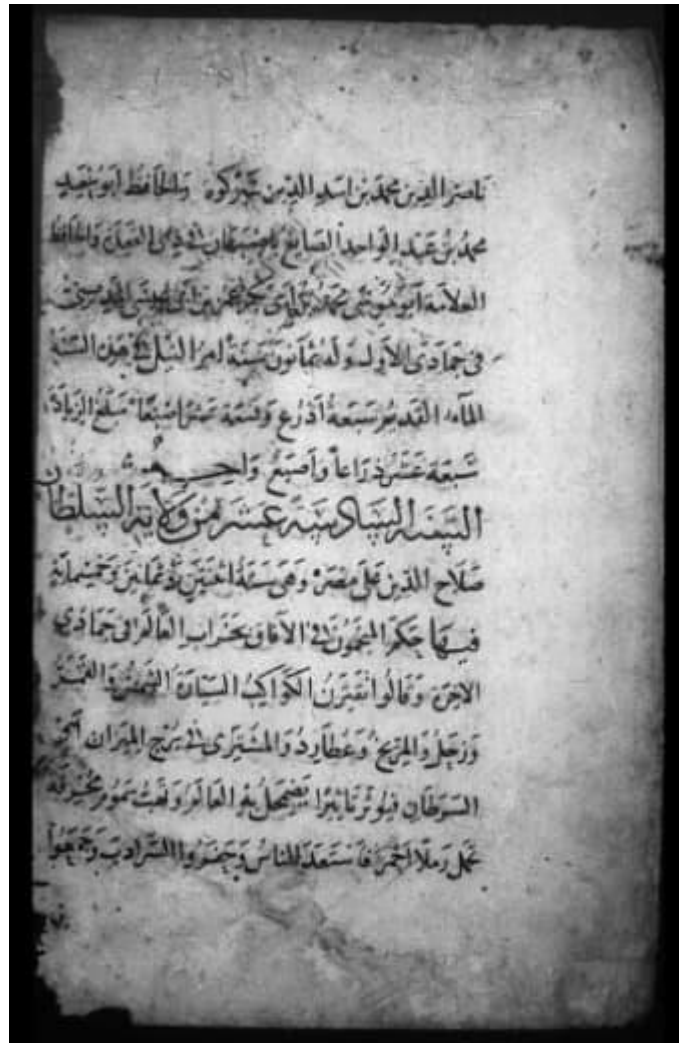 ناصر الدين محمد بن اسد الدين شيركوه والحافظ ابو سعيد
محمد بن عبد الواحد الصايغ باصبهان في ذي القعدة والحافظ
العلامة ابو موسى محمد بن ابي بكر عمر بن ابي عيسى المديني
في جمادى الاولى وله ثمانون سنة امر النيل في هذه السنة
الماء القديم سبعة أذرع وتسعة عشر اصبعا مبلغ الزيادة
سبعة عشر ذراعا واصبع واحد
السنة السادسة عشر من ولاية السلطان
صلاح الدين على مصر وهي سنة اثنتين وثمانين وخمسماية
فيها حكم المنجمون في الآفاق بخراب العالم في جمادى
الاخرة وقالوا تقترن الكواكب السيارة الشمس والقمر
وزحل والمريخ وعطارد والمشتري في برج الميزان
السرطان فيوثر تاثيرا يضمحل به العالم وتهب سموم محرقة
تحمل رملا احمر فاستعد الناس وحفروا السراديب وجمعوا